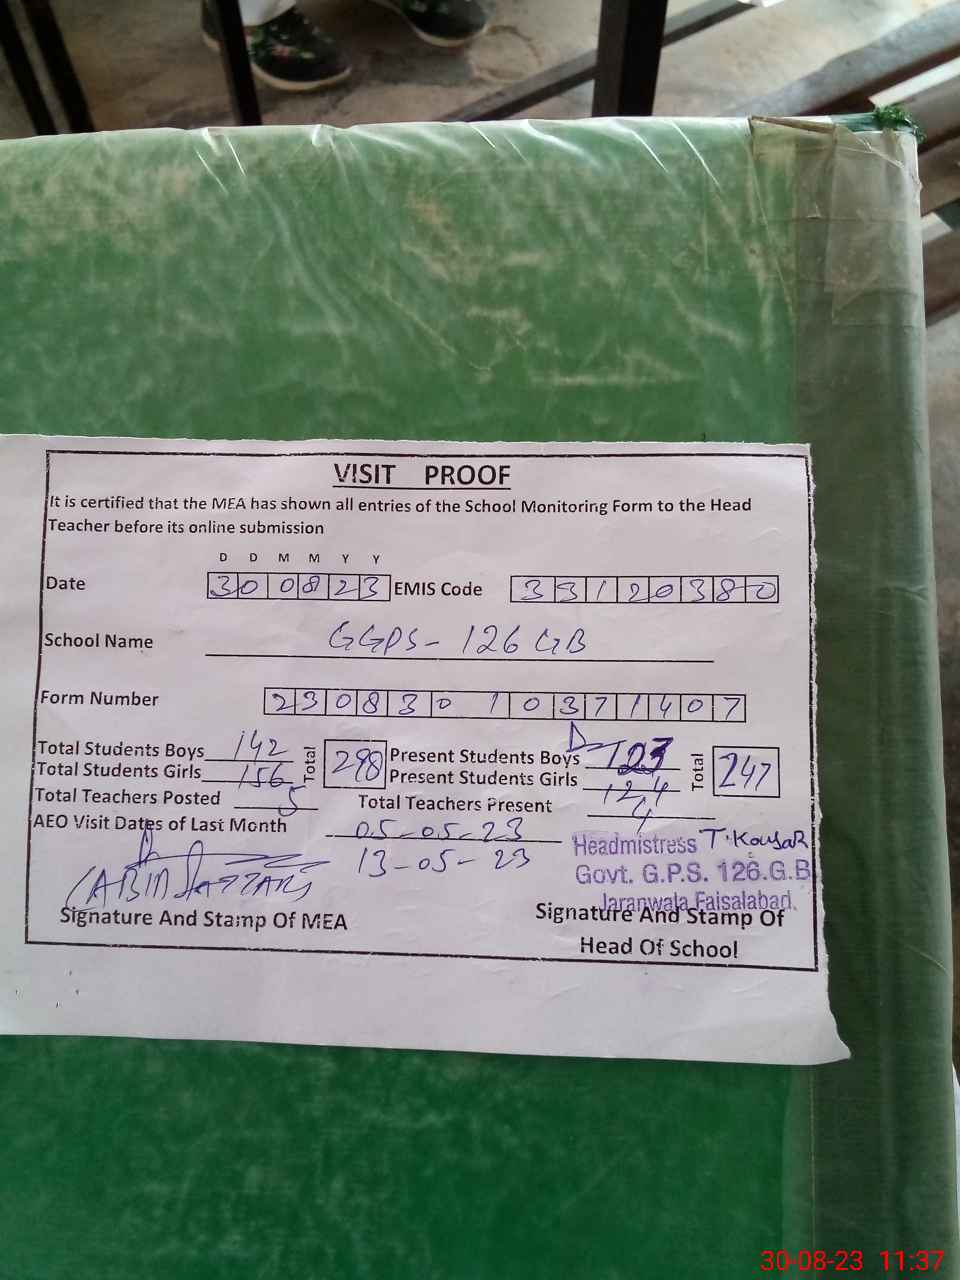 VISIT PROOF
It is certified that the MEA has shown all entries of the School Monitoring Form to the Head
Teacher before its online submission
D D M M Y Y
Date 300823 EMIS Code 33120380
School Name GGPS-126 GB
Form Number 230830 10371407
Total Students Boys 142 Total 298 Present Students Boys 123 Total 247
Total Students Girls 156 Present Students Girls 124
Total Teachers Posted 5 Total Teachers Present 4
AEO Visit Dates of Last Month 05-05-23
13-05-23
Headmistress T.Kousar
Govt. G.P.S. 126.G.B
Jaranwala Faisalabad.
Signature And Stamp Of MEA
Signature And Stamp Of
Head Of School
30-08-23 11:37